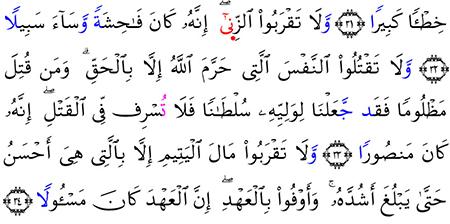 خِطْـًٔا كَبِيرًا ۝٣١ وَلَا تَقْرَبُوا۟ ٱلزِّنَىٰٓ ۖ إِنَّهُۥ كَانَ فَـٰحِشَةً وَسَآءَ سَبِيلًا
۝٣٢ وَلَا تَقْتُلُوا۟ ٱلنَّفْسَ ٱلَّتِى حَرَّمَ ٱللَّهُ إِلَّا بِٱلْحَقِّ ۗ وَمَن قُتِلَ
مَظْلُومًا فَقَد جَّعَلْنَا لِوَلِيِّهِۦ سُلْطَـٰنًا فَلَا تُسْرِف فِّى ٱلْقَتْلِ ۖ إِنَّهُۥ
كَانَ مَنصُورًا ۝٣٣ وَلَا تَقْرَبُوا۟ مَالَ ٱلْيَتِيمِ إِلَّا بِٱلَّتِى هِىَ أَحْسَنُ
حَتَّىٰ يَبْلُغَ أَشُدَّهُۥ ۚ وَأَوْفُوا۟ بِٱلْعَهْدِ ۖ إِنَّ ٱلْعَهْدَ كَانَ مَسْـُٔولًا ۝٣٤